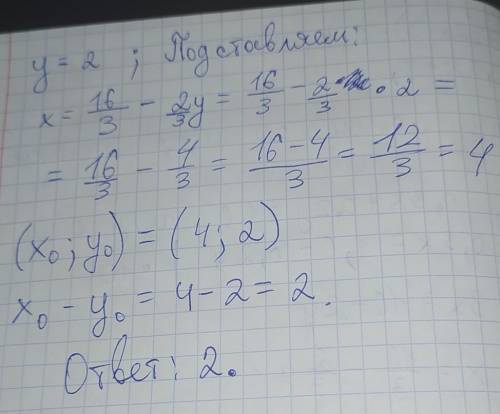 y = 2 ; Подставляем:
x = 16/3 - 2/3 y = 16/3 - 2/3 · 2 =
= 16/3 - 4/3 = (16-4)/3 = 12/3 = 4
(x₀; y₀) = (4; 2)
x₀ - y₀ = 4 - 2 = 2.
Ответ: 2.